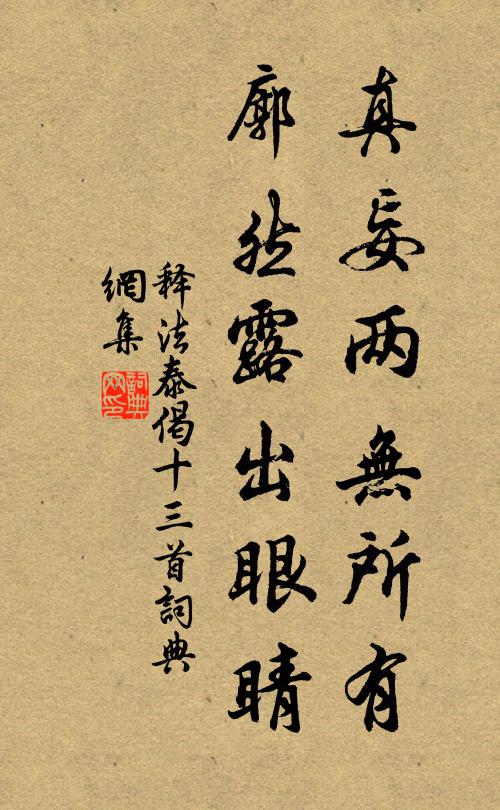 真妄两無所有
廓然露出眼睛
释法泰偈十三首詞典
網集
詞典
网印